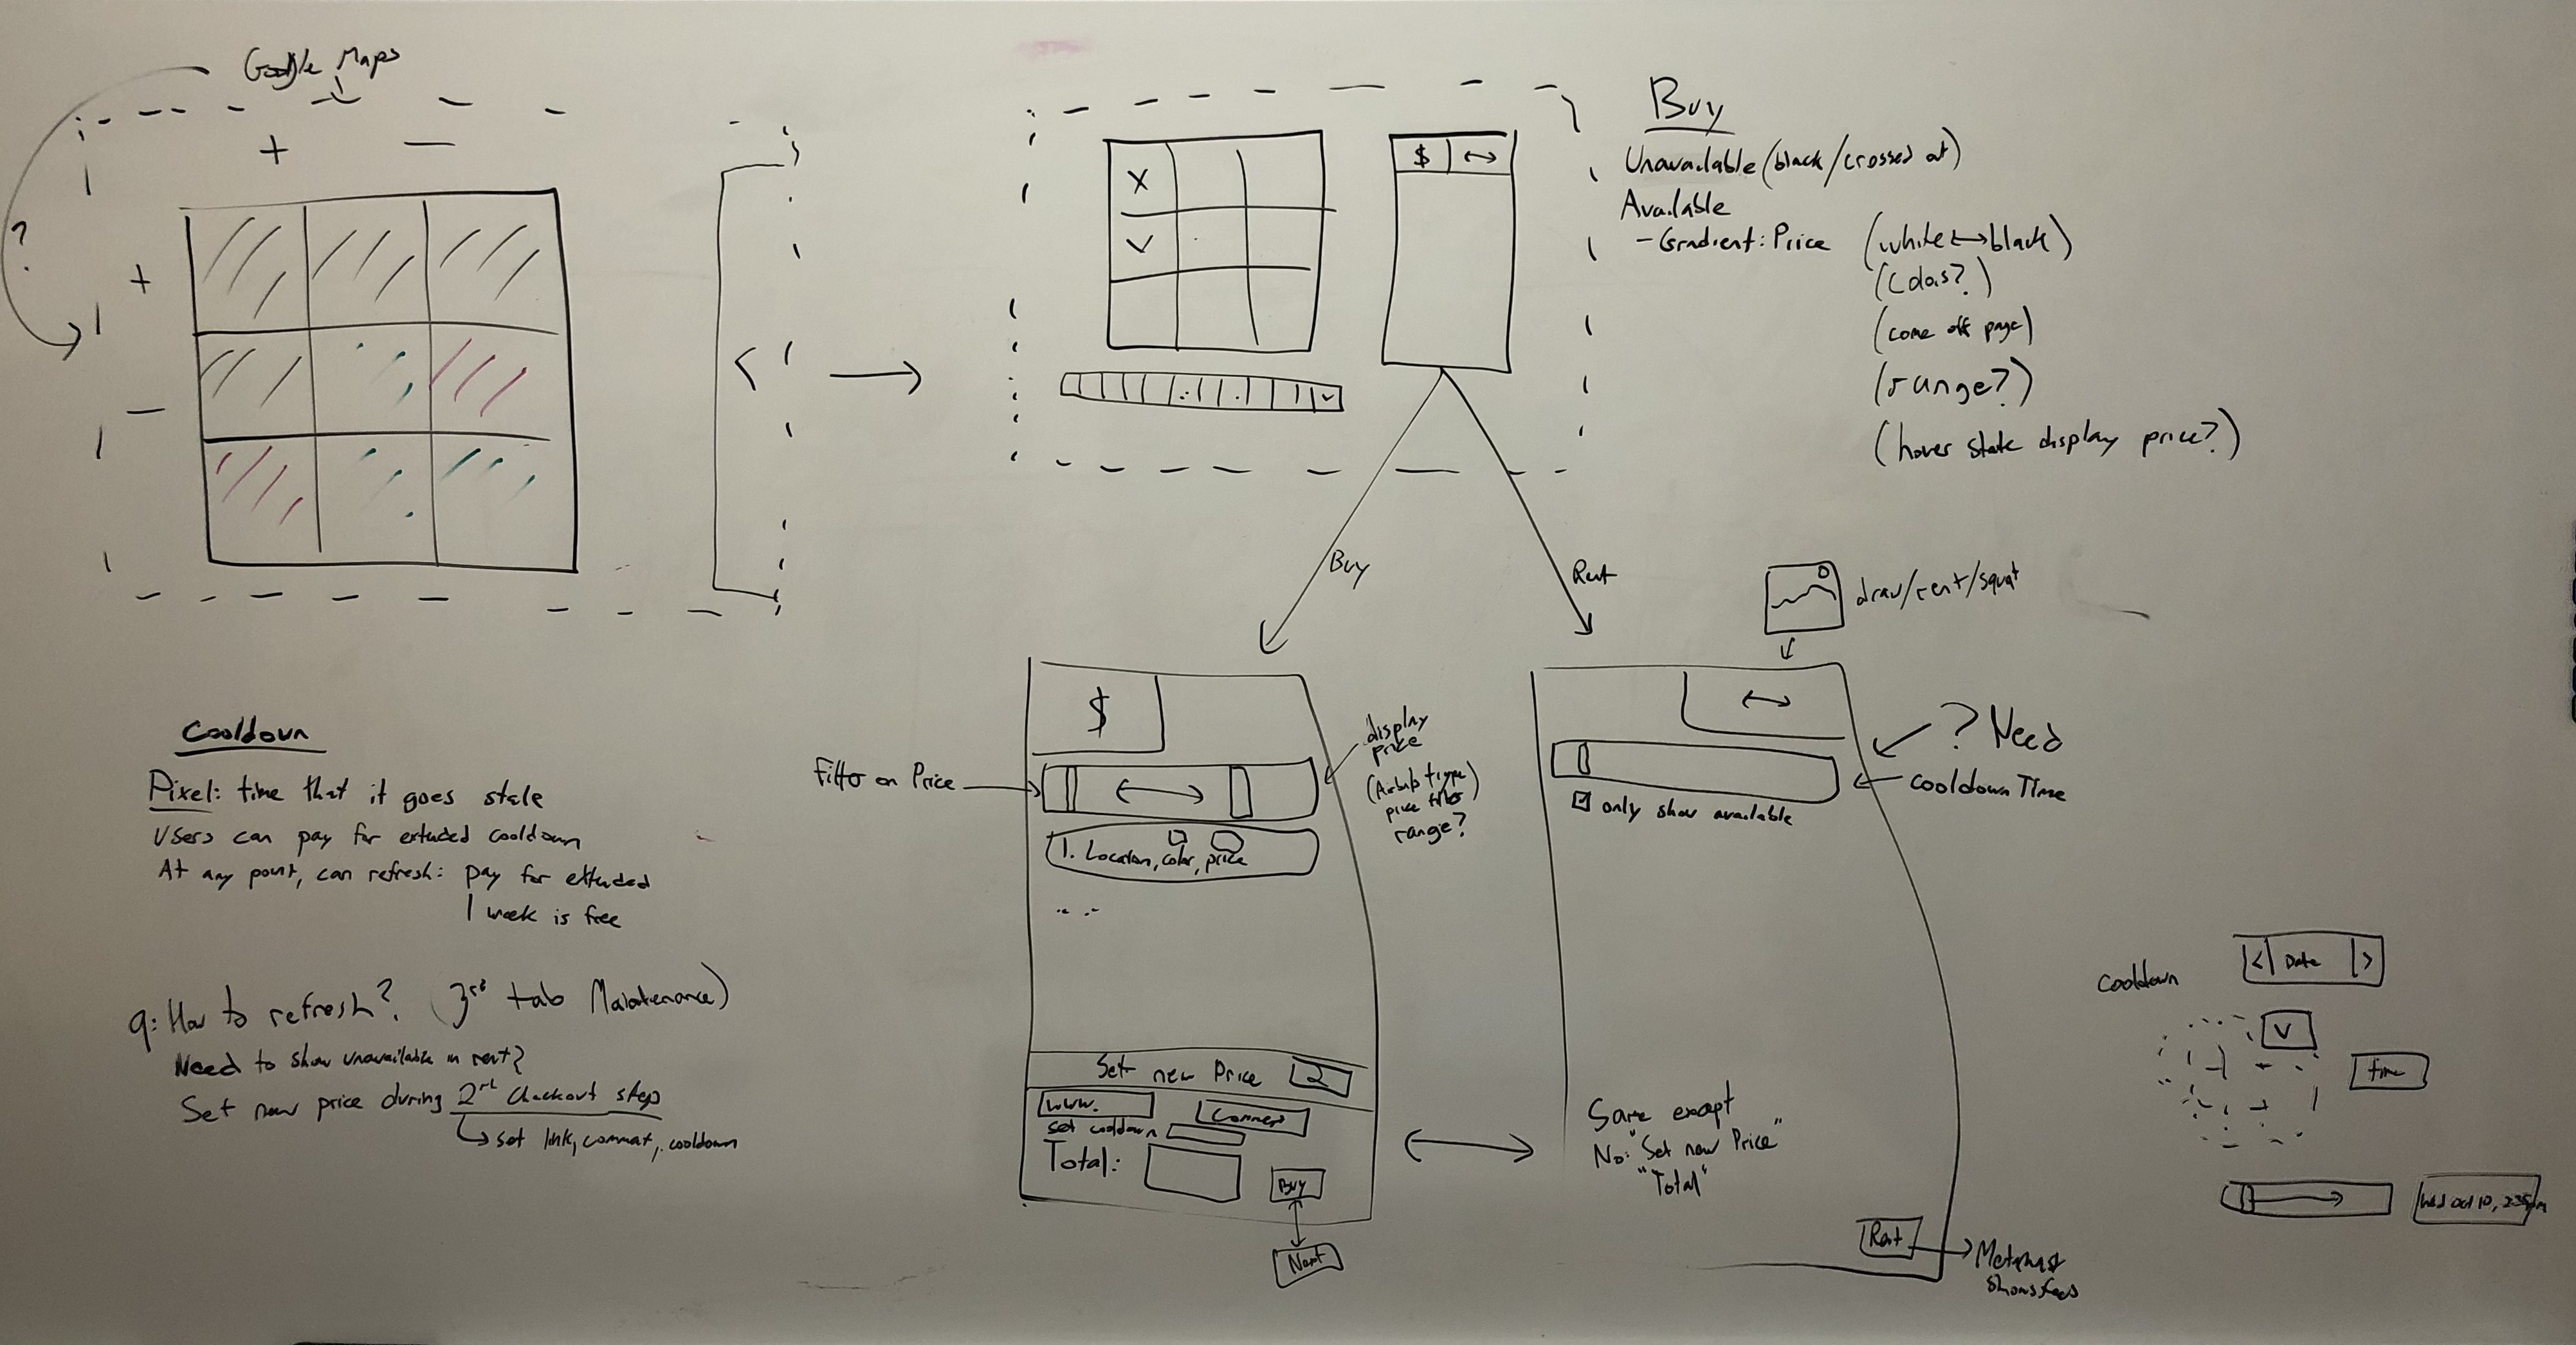 Google Maps
+ —
?
+
—
<
X
V
$ ↔
Buy
Unavailable (black/crossed out)
Available
- Gradient: Price (white ↔ black)
(Colors?)
(come off page)
(range?)
(hover state display price?)
Buy
Rent
draw/rent/squat
Cooldown
Pixel: time that it goes stale
Users can pay for extended cooldown
At any point, can refresh: pay for extended
1 week is free
q: How to refresh? (3rd tab Maintenance)
Need to show unavailable in rent?
Set new price during 2nd checkout step
set link, comment, cooldown
$
Filter on Price
display
price
(Airbnb type
price filter
range?
1. Location, color, price
Set new Price 2
www.
Comment
set cooldown
Total:
Buy
Next
↔
? Need
cooldown Time
only show available
Same except
No: "Set new Price"
"Total"
Rent
Metamask
shows fees
cooldown
< Date >
V
time
Wed Oct 10, 2:35pm